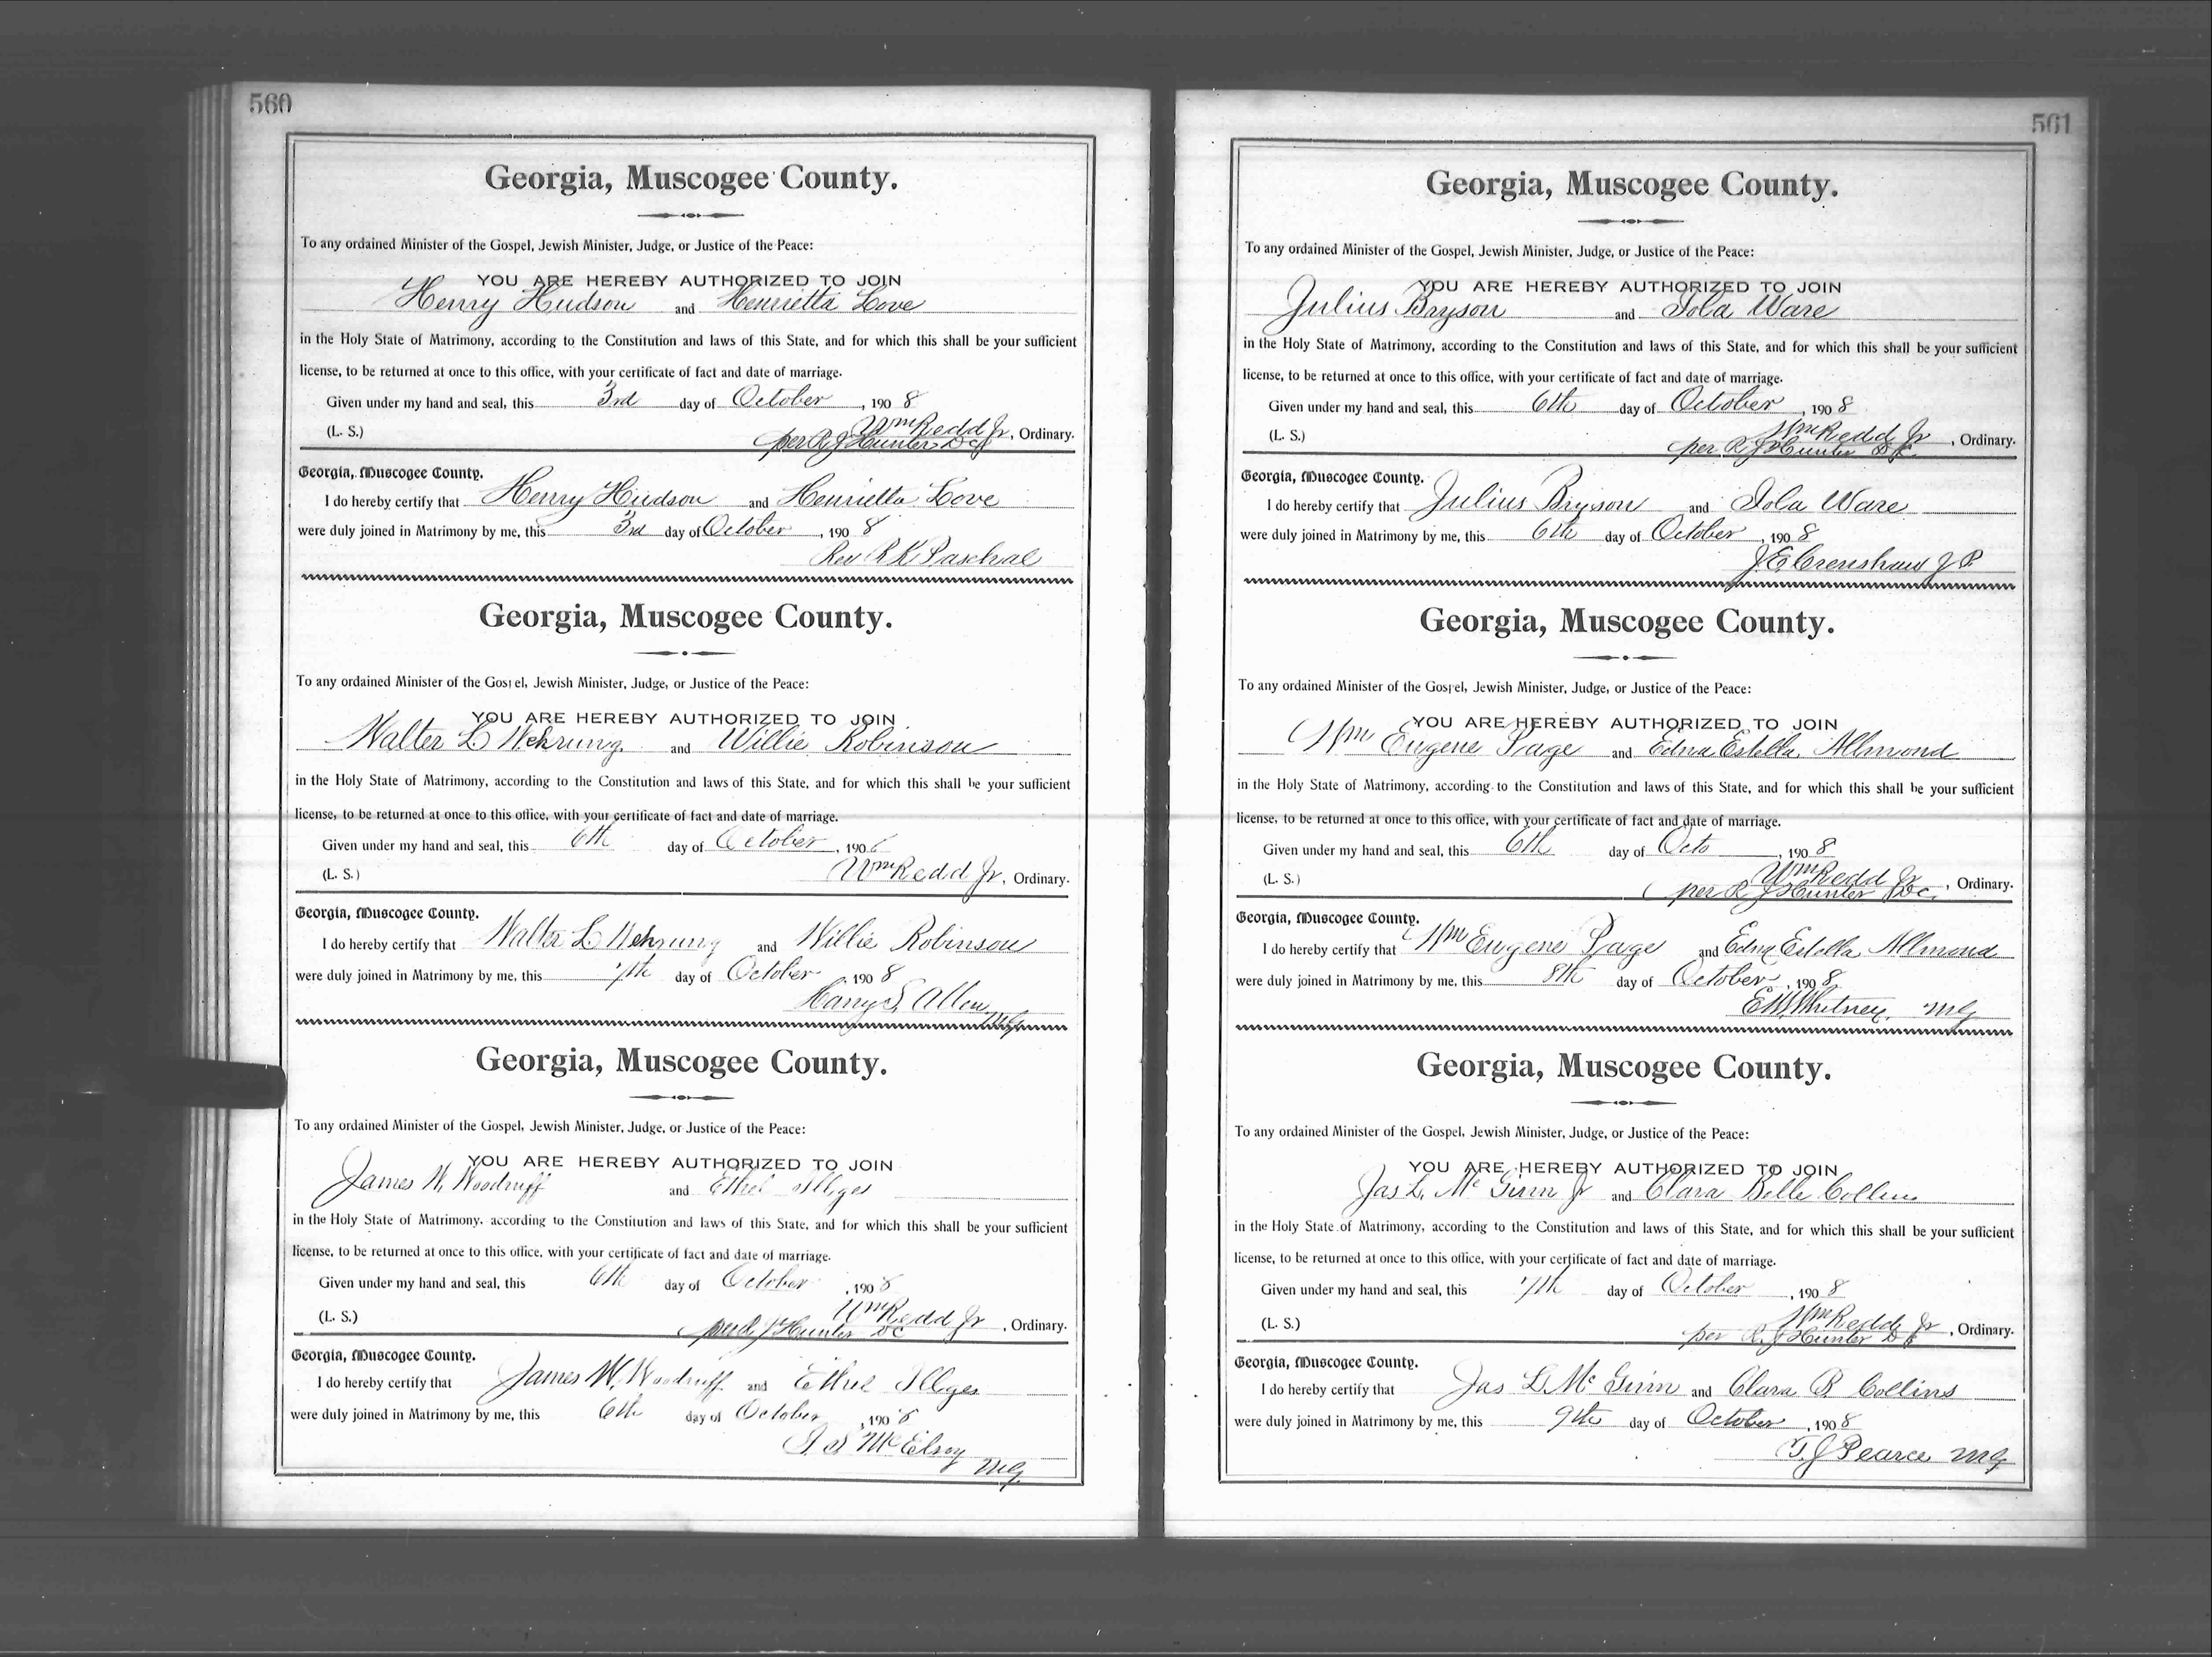 560
Georgia, Muscogee County.
To any ordained Minister of the Gospel, Jewish Minister, Judge, or Justice of the Peace:
YOU ARE HEREBY AUTHORIZED TO JOIN
Henry Hudson and Henrietta Love
in the Holy State of Matrimony, according to the Constitution and laws of this State, and for which this shall be your sufficient
license, to be returned at once to this office, with your certificate of fact and date of marriage.
Given under my hand and seal, this 3rd day of October, 1908
(L. S.) Wm Redd Jr, Ordinary.
per R J Hunter DC
Georgia, Muscogee County.
I do hereby certify that Henry Hudson and Henrietta Love
were duly joined in Matrimony by me, this 3rd day of October, 1908
Rev R K Paschal
Georgia, Muscogee County.
To any ordained Minister of the Gospel, Jewish Minister, Judge, or Justice of the Peace:
YOU ARE HEREBY AUTHORIZED TO JOIN
Walter L Wehrung and Willie Robinson
in the Holy State of Matrimony, according to the Constitution and laws of this State, and for which this shall be your sufficient
license, to be returned at once to this office, with your certificate of fact and date of marriage.
Given under my hand and seal, this 6th day of October, 190
(L. S.) Wm Redd Jr, Ordinary.
Georgia, Muscogee County.
I do hereby certify that Walter L Wehrung and Willie Robinson
were duly joined in Matrimony by me, this 7th day of October, 1908
Harry S. Allen
MG
Georgia, Muscogee County.
To any ordained Minister of the Gospel, Jewish Minister, Judge, or Justice of the Peace:
YOU ARE HEREBY AUTHORIZED TO JOIN
James W. Woodruff and Ethel Illges
in the Holy State of Matrimony, according to the Constitution and laws of this State, and for which this shall be your sufficient
license, to be returned at once to this office, with your certificate of fact and date of marriage.
Given under my hand and seal, this 6th day of October, 1908
(L. S.) Wm Redd Jr, Ordinary.
per R J Hunter DC
Georgia, Muscogee County.
I do hereby certify that James W. Woodruff and Ethel Illges
were duly joined in Matrimony by me, this 6th day of October, 1908
I S McElroy
MG
561
Georgia, Muscogee County.
To any ordained Minister of the Gospel, Jewish Minister, Judge, or Justice of the Peace:
YOU ARE HEREBY AUTHORIZED TO JOIN
Julius Bryson and Iola Ware
in the Holy State of Matrimony, according to the Constitution and laws of this State, and for which this shall be your sufficient
license, to be returned at once to this office, with your certificate of fact and date of marriage.
Given under my hand and seal, this 6th day of October, 1908
(L. S.) Wm Redd Jr, Ordinary.
per R J Hunter DC
Georgia, Muscogee County.
I do hereby certify that Julius Bryson and Iola Ware
were duly joined in Matrimony by me, this 6th day of October, 1908
J. E. Crenshaw J P
Georgia, Muscogee County.
To any ordained Minister of the Gospel, Jewish Minister, Judge, or Justice of the Peace:
YOU ARE HEREBY AUTHORIZED TO JOIN
Wm Eugene Page and Edna Estella Allmond
in the Holy State of Matrimony, according to the Constitution and laws of this State, and for which this shall be your sufficient
license, to be returned at once to this office, with your certificate of fact and date of marriage.
Given under my hand and seal, this 6th day of Octo, 1908
(L. S.) Wm Redd Jr, Ordinary.
per R J Hunter DC
Georgia, Muscogee County.
I do hereby certify that Wm Eugene Page and Edna Estella Allmond
were duly joined in Matrimony by me, this 8th day of October, 1908
E W Whitney. MG
Georgia, Muscogee County.
To any ordained Minister of the Gospel, Jewish Minister, Judge, or Justice of the Peace:
YOU ARE HEREBY AUTHORIZED TO JOIN
Jas L. McGinn Jr and Clara Belle Collins
in the Holy State of Matrimony, according to the Constitution and laws of this State, and for which this shall be your sufficient
license, to be returned at once to this office, with your certificate of fact and date of marriage.
Given under my hand and seal, this 7th day of October, 1908
(L. S.) Wm Redd Jr, Ordinary.
per R J Hunter DC
Georgia, Muscogee County.
I do hereby certify that Jas L McGinn and Clara B Collins
were duly joined in Matrimony by me, this 9th day of October, 1908
T. J Pearce MG